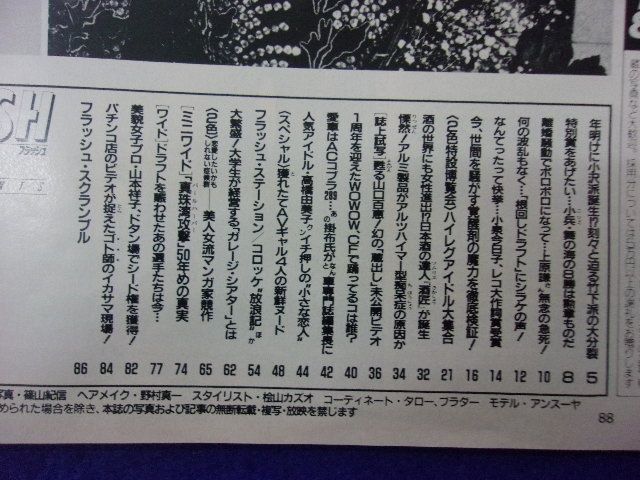 SH
フラッシュ
NEWS
年明けに小沢派誕生!?刻々と迫る竹下派の大分裂 5
特別賞をあげたい…小兵・舞の海の8勝は勲章ものだ 8
離婚騒動でボロボロになって…上原謙〝無念の急死〟! 10
何の波乱もなく…〝根回しドラフト〟にシラケの声! 12
なんてったって快挙…小泉今日子、レコ大作詞賞受賞 14
今、世間を騒がす覚醒剤の魔力を徹底検証! 16
〈2色特設博覧会〉ハイレグアイドル大集合 21
酒の世界にも女性進出!?日本酒の達人「酒匠」が誕生 32
慄然!アルミ製品がアルツハイマー型痴呆症の原因か 34
[誌上試写]甦る山口百恵!幻の「蔵出し」未公開ビデオ 36
1周年を迎えたWOWOW、CFで踊ってるコは誰? 40
愛車はACコブラ289…あの掛布氏がなんと車専門誌編集長に 42
人気アイドル・高橋由美子〝イチ押しの〟小さな恋人〟 44
〈スペシャル〉獲れたてAVギャル4人の新鮮ヌード 48
フラッシュ・ステーション コロッケ〝放浪記〟ほか 54
大繁盛!大学生が経営する〝ガレージ・シアター〟とは 62
〈2色〉恋愛したいかもしれない症候群 美人女流マンガ家競作 65
[ミニワイド]「真珠湾攻撃」50年めの真実 74
[ワイド]ドラフトを賑わせたあの選手たちは今… 77
美貌女子プロ・山本祥子、ドタン場でシード権を獲得! 82
パチンコ店のビデオが捉えたゴト師のイカサマ現場! 84
フラッシュ・スクランブル 86
写真・篠山紀信 ヘアメイク・野村真一 スタイリスト・桧山カズオ コーティネート・タロー、プラター モデル・アンスーヤ
められた場合を除き、本誌の写真および記事の無断転載・複写・放映を禁じます
88